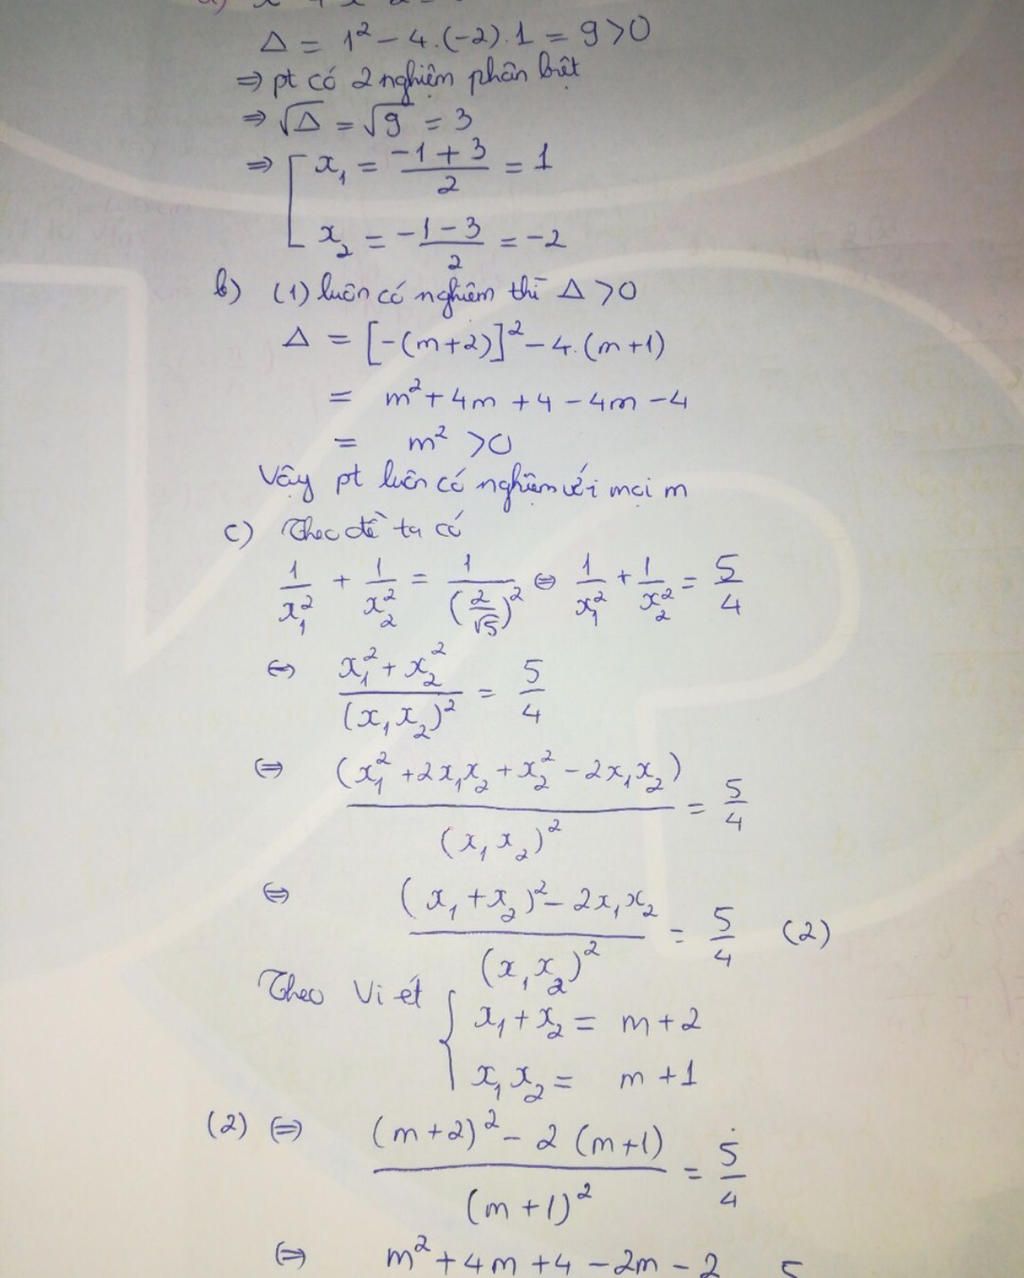 Δ = 1² - 4.(-2).1 = 9 > 0
⇒ pt có 2 nghiệm phân biệt
⇒ √Δ = √9 = 3
⇒ [ x₁ = (-1 + 3)/2 = 1
x₂ = (-1 - 3)/2 = -2
b) (1) luôn có nghiệm thì Δ > 0
Δ = [-(m+2)]² - 4.(m+1)
= m² + 4m + 4 - 4m - 4
= m² > 0
Vậy pt luôn có nghiệm với mọi m
c) Theo đề ta có
1/x₁² + 1/x₂² = 1/(2/√5)² ⇔ 1/x₁² + 1/x₂² = 5/4
⇔ (x₁² + x₂²)/(x₁x₂)² = 5/4
⇔ (x₁² + 2x₁x₂ + x₂² - 2x₁x₂)/(x₁x₂)² = 5/4
⇔ ((x₁ + x₂)² - 2x₁x₂)/(x₁x₂)² = 5/4 (2)
Theo Vi ét { x₁ + x₂ = m + 2
x₁x₂ = m + 1
(2) ⇔ ((m+2)² - 2(m+1))/(m+1)² = 5/4
⇔ m² + 4m + 4 - 2m - 2 5